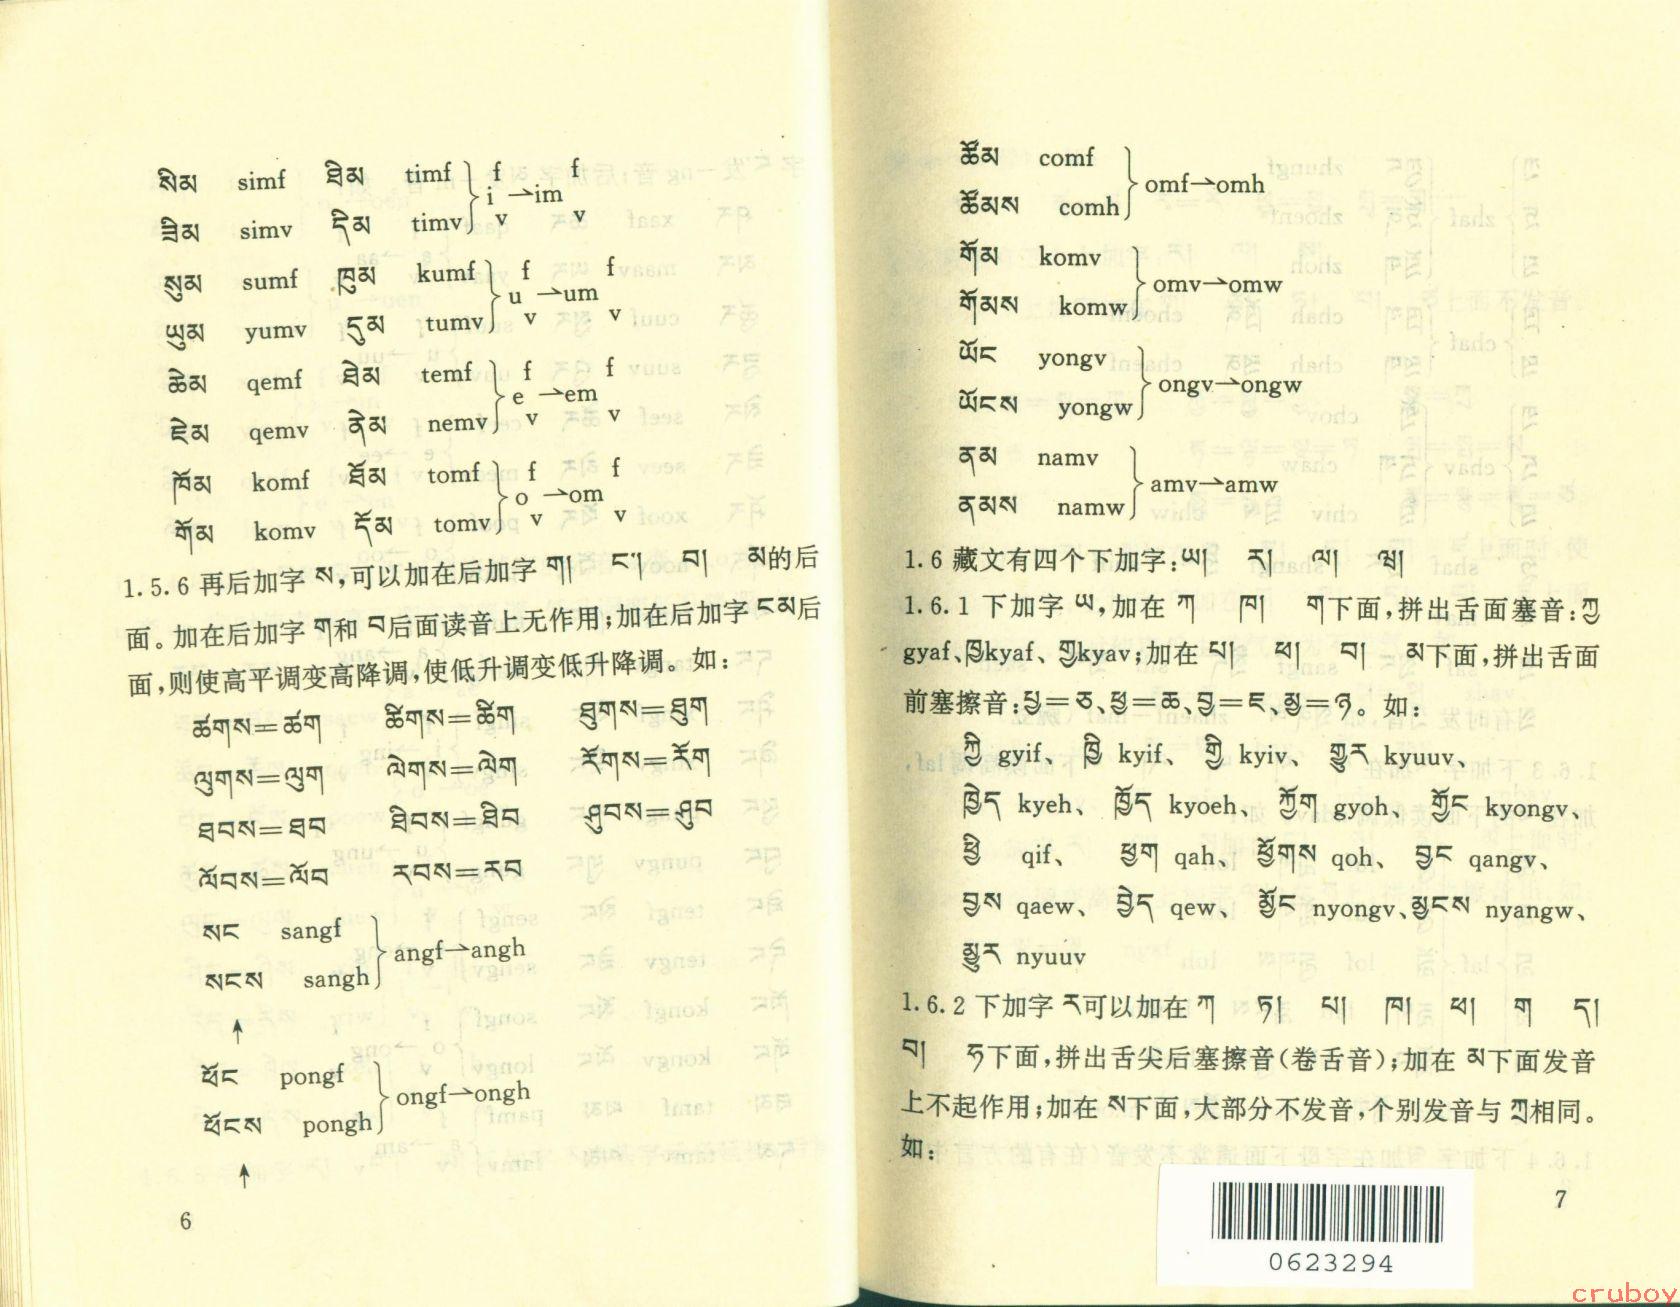 སིམ simf ཐིམ timf f f
ཟིམ simv དིམ timv i→im
v v
སུམ sumf ཁུམ kumf f f
ཡུམ yumv དུམ tumv u→um
v v
ཆེམ qemf ཐེམ temf f f
ཇེམ qemv ནེམ nemv e→em
v v
ཁོམ komf ཐོམ tomf f f
གོམ komv དོམ tomv o→om
v v
1.5.6 再后加字 ས,可以加在后加字 ག། ང་། བ། མ的后
面。加在后加字 ག和 བ后面读音上无作用;加在后加字 ང མ后
面,则使高平调变高降调,使低升调变低升降调。如:
ཚགས=ཚག ཚིགས=ཚིག ཐུགས=ཐུག
ལུགས=ལུག ལེགས=ལེག རོགས=རོག
ཐབས=ཐབ ཐིབས=ཐིབ ཤུབས=ཤུབ
ལོབས=ལོབ རབས=རབ
སང sangf
སངས sangh angf→angh
↑
ཕོང pongf
ཕོངས pongh ongf→ongh
↑
6
ཚོམ comf
ཚོམས comh omf→omh
གོམ komv
གོམས komw omv→omw
ཡོང yongv
ཡོངས yongw ongv→ongw
ནམ namv
ནམས namw amv→amw
1.6 藏文有四个下加字:ཡ། ར། ལ། ཝ།
1.6.1 下加字 ཡ,加在 ཀ ཁ། ག下面,拼出舌面塞音:ཀྱ
gyaf、ཁྱkyaf、གྱkyav;加在 པ། ཕ། བ། མ下面,拼出舌面
前塞擦音:པྱ=ཅ、ཕྱ=ཆ、བྱ=ཇ、མྱ=ཉ。如:
ཀྱི gyif、 ཁྱི kyif、 གྱི kyiv、 གྱུར kyuuv、
ཁྱེད kyeh、 ཁྱོད kyoeh、 ཀྱོག gyoh、 གྱོང kyongv、
ཕྱི qif、 ཕྱག qah、 ཕྱོགས qoh、 བྱང qangv、
བྱས qaew、 བྱེད qew、 མྱོང nyongv、མྱངས nyangw、
མྱུར nyuuv
1.6.2 下加字 ར可以加在 ཀ ཏ། པ། ཁ། ཕ། ག ད།
བ། ཧ下面,拼出舌尖后塞擦音(卷舌音);加在 མ下面发音
上不起作用;加在 ས下面,大部分不发音,个别发音与 ཀྲ相同。
如:
7
0623294
cruboy